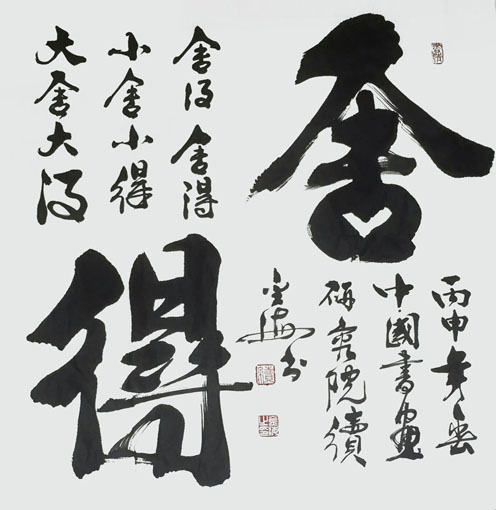 舍
得
舍得舍得
小舍小得
大舍大得
丙申年
中國書畫
研究院
書